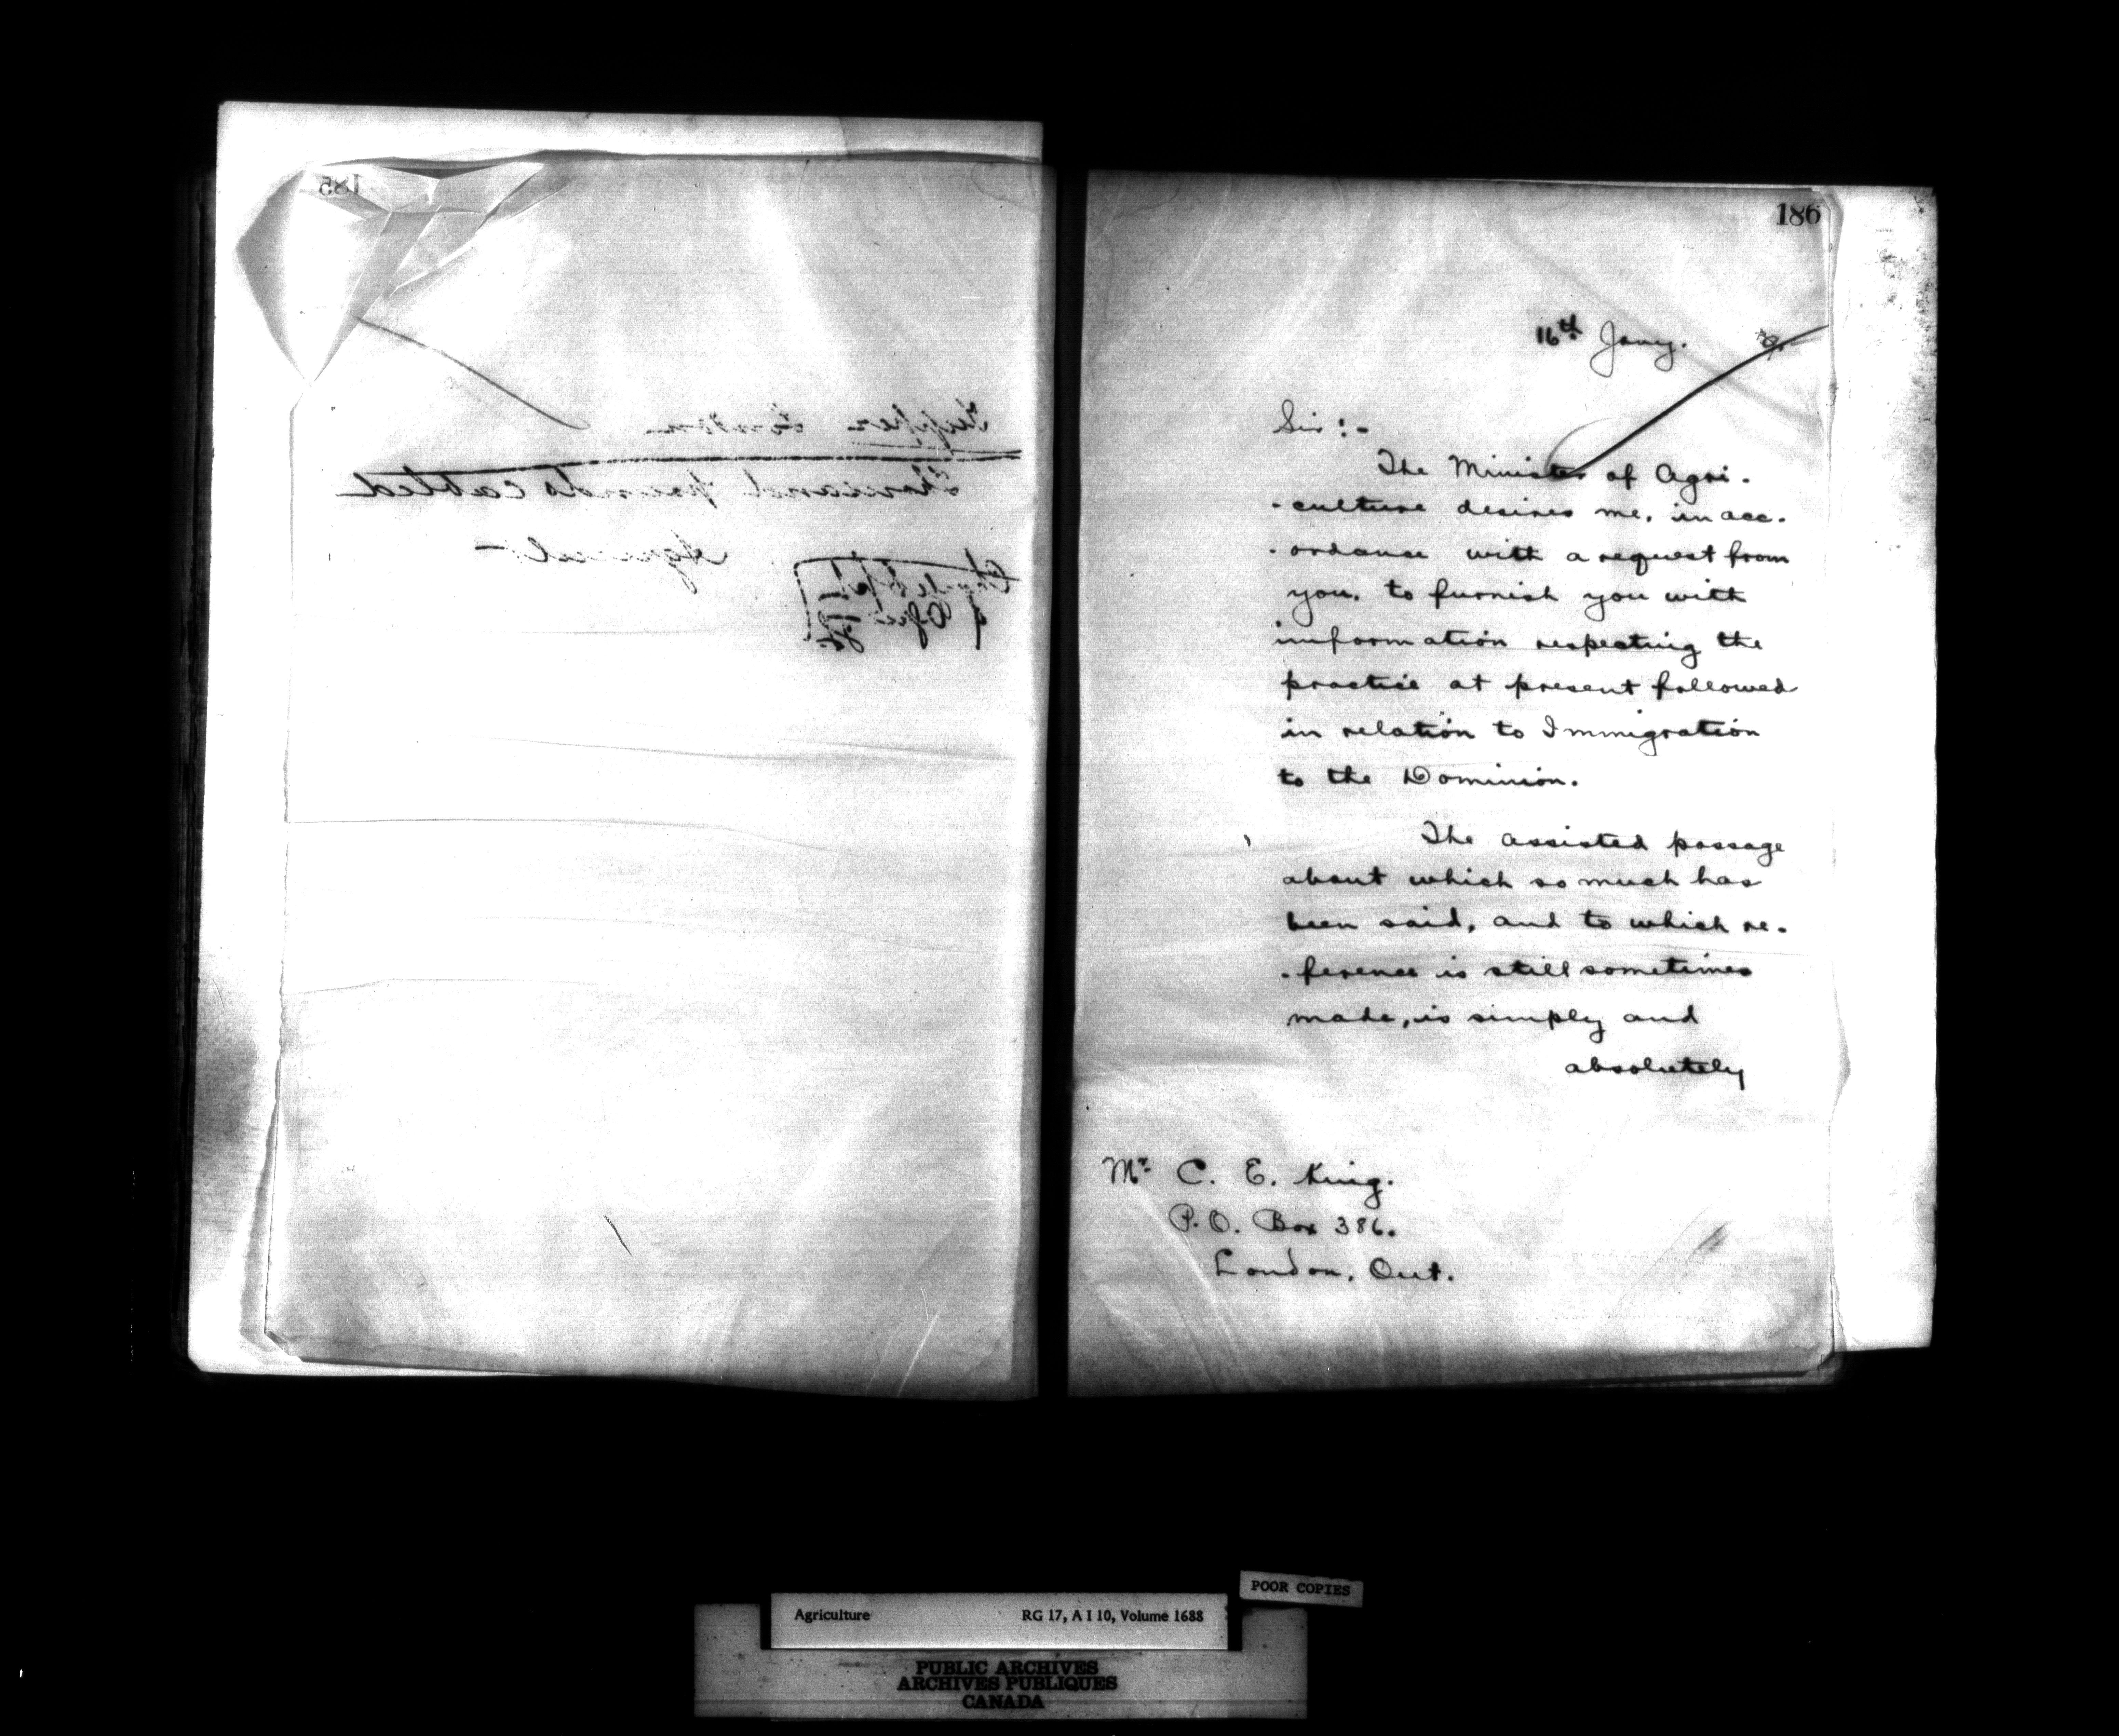 185
Tupper London
Thousand pounds cabled
Agricult
186
16th Jany.
Sir:-
The Minister of Agri-
-culture desires me, in acc-
-ordance with a request from
you, to furnish you with
information respecting the
practice at present followed
in relation to Immigration
to the Dominion.
The assisted passage
about which so much has
been said, and to which re-
-ference is still sometimes
made, is simply and
absolutely
Mr. C. E. King.
P.O. Box 386.
London, Ont.
POOR COPIES
Agriculture RG 17, A I 10, Volume 1688
PUBLIC ARCHIVES
ARCHIVES PUBLIQUES
CANADA